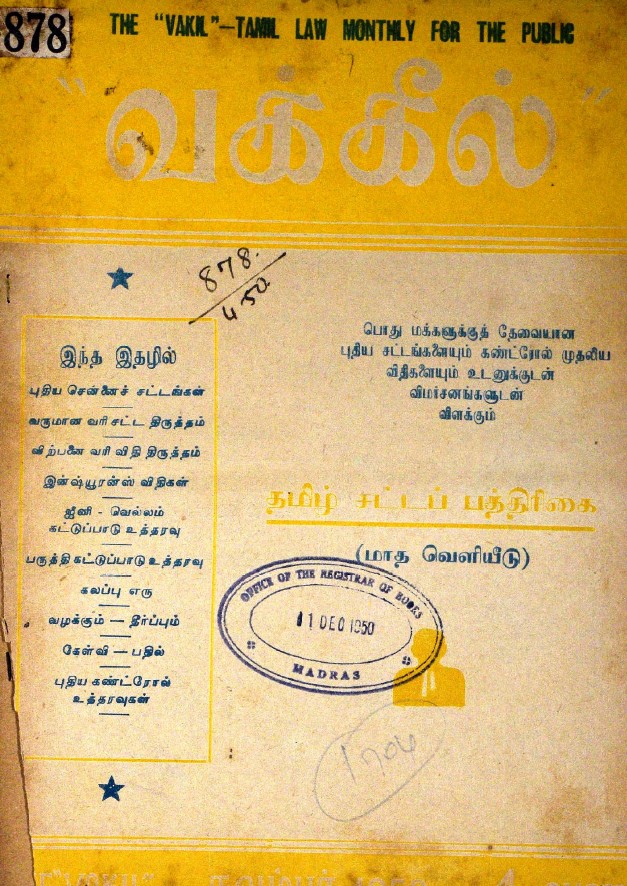 878
THE "VAKIL"—TAMIL LAW MONTHLY FOR THE PUBLIC
"வக்கீல்"
878.
450.
இந்த இதழில்
புதிய சென்னைச் சட்டங்கள்
வருமான வரி சட்ட திருத்தம்
விற்பனை வரி விதி திருத்தம்
இன்ஷ்யூரன்ஸ் விதிகள்
ஜீனி - வெல்லம்
கட்டுப்பாடு உத்தரவு
பருத்தி கட்டுப்பாடு உத்தரவு
கலப்பு எரு
வழக்கும் — தீர்ப்பும்
கேள்வி — பதில்
புதிய கண்ட்ரோல்
உத்தரவுகள்
பொது மக்களுக்குத் தேவையான
புதிய சட்டங்களையும் கண்ட்ரோல் முதலிய
விதிகளையும் உடனுக்குடன்
விமர்சனங்களுடன்
விளக்கும்
தமிழ் சட்டப் பத்திரிகை
(மாத வெளியீடு)
OFFICE OF THE REGISTRAR OF BOOKS
11 DEC 1950
MADRAS
1704